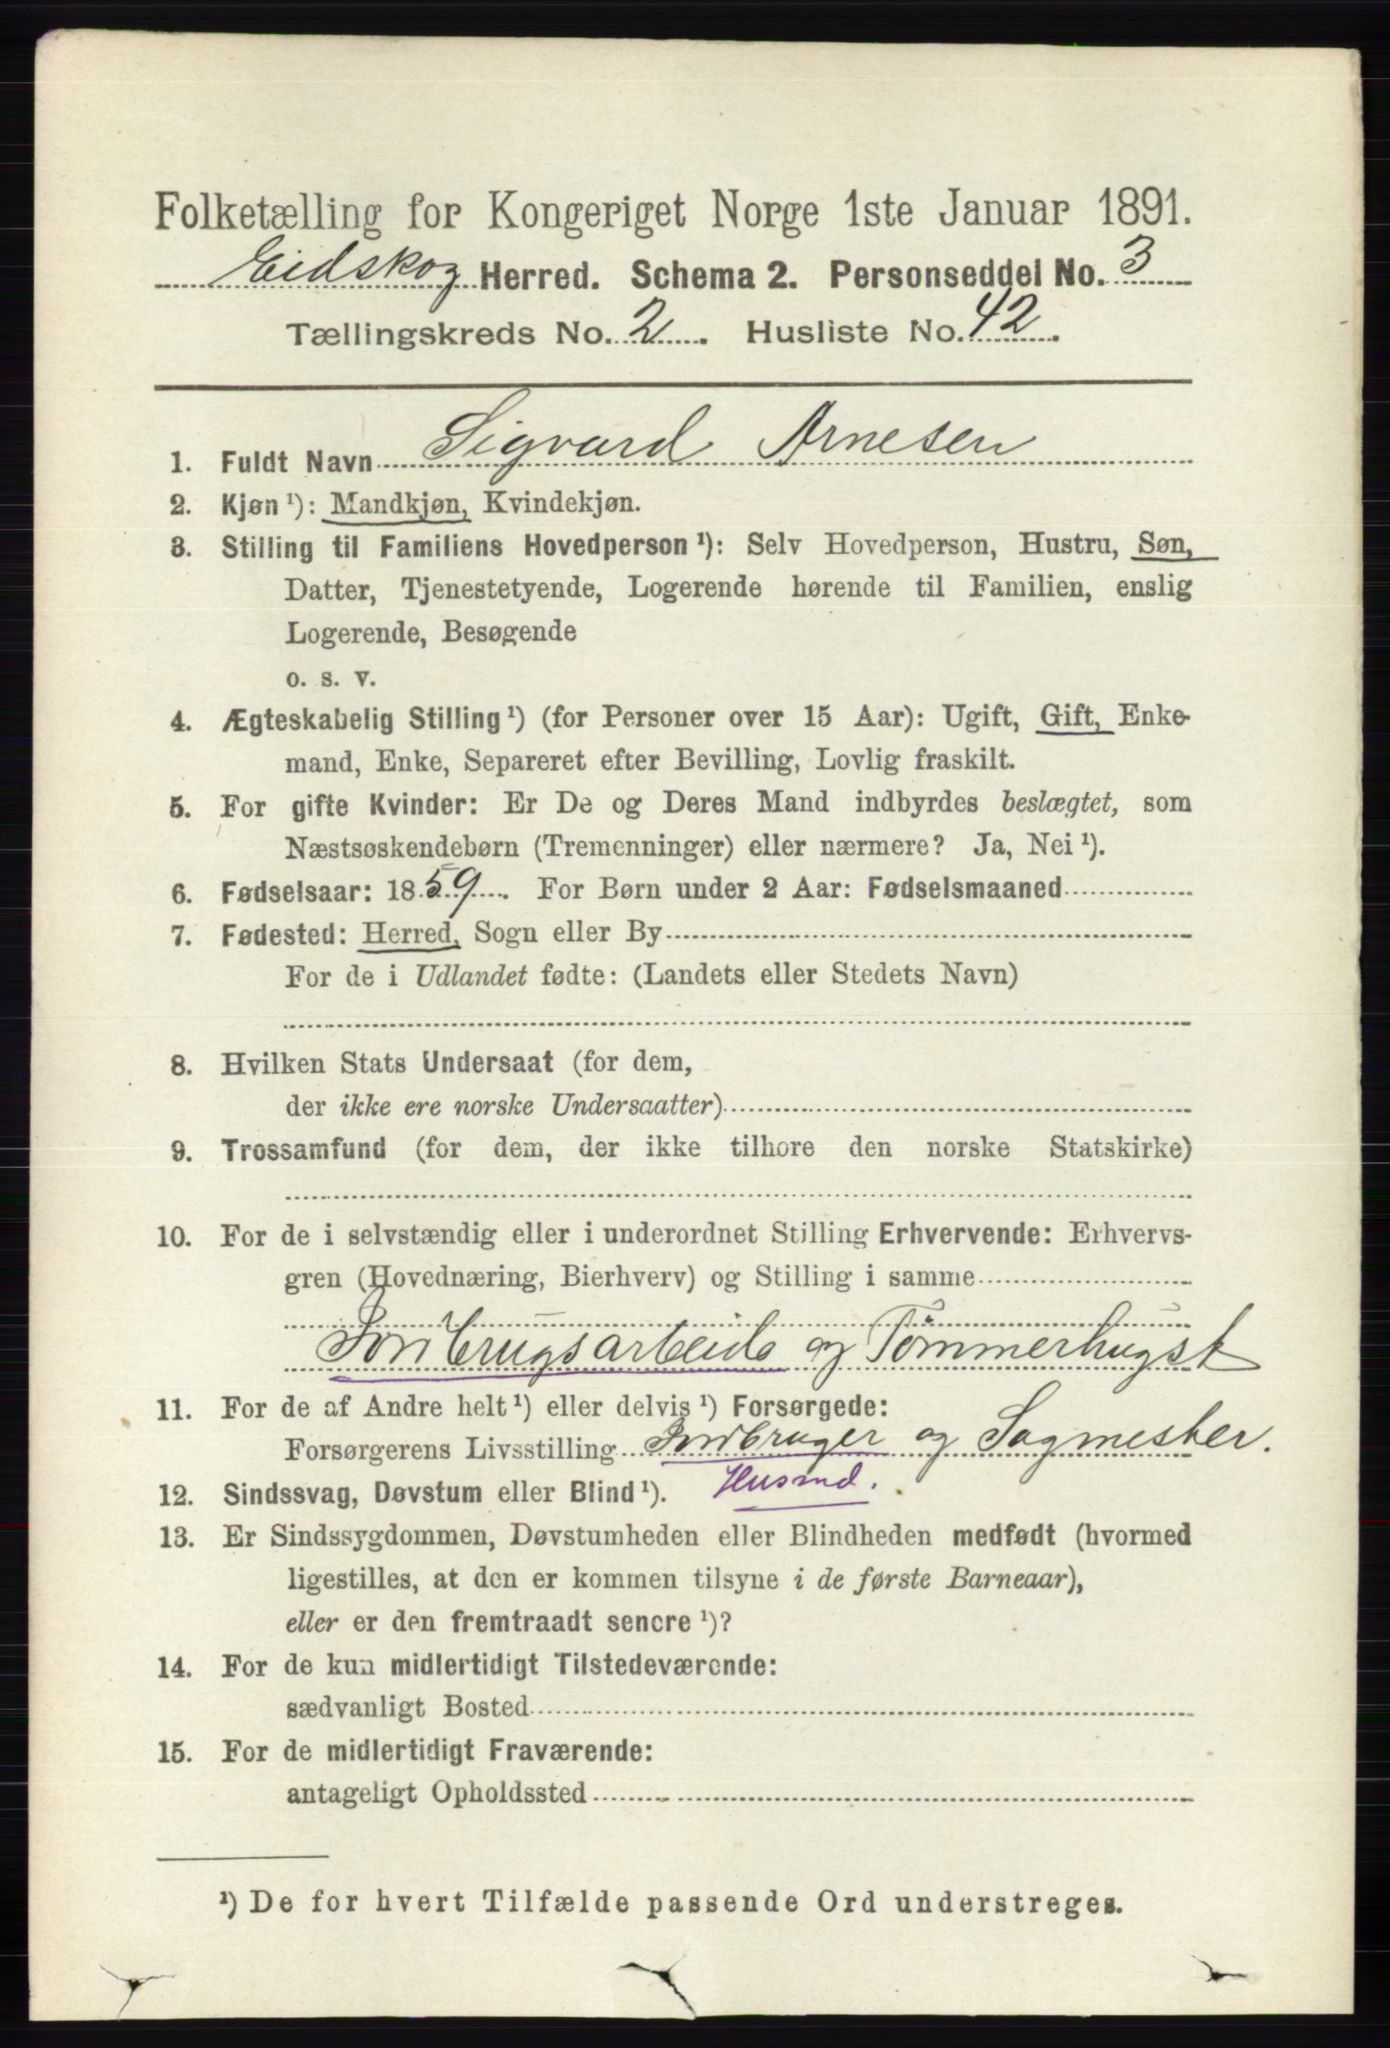 Folketælling for Kongeriget Norge 1ste Januar 1891.
Eidskog Herred. Schema 2. Personseddel No. 3
Tællingskreds No. 2. Husliste No. 42.
1. Fuldt Navn Sigvard Arnesen
2. Kjøn ¹): Mandkjøn, Kvindekjøn.
3. Stilling til Familiens Hovedperson ¹): Selv Hovedperson, Hustru, Søn,
Datter, Tjenestetyende, Logerende hørende til Familien, enslig
Logerende, Besøgende
o. s. v.
4. Ægteskabelig Stilling ¹) (for Personer over 15 Aar): Ugift, Gift, Enke-
mand, Enke, Separeret efter Bevilling, Lovlig fraskilt.
5. For gifte Kvinder: Er De og Deres Mand indbyrdes beslægtet, som
Næstsøskendebørn (Tremenninger) eller nærmere? Ja, Nei ¹).
6. Fødselsaar: 1859. For Børn under 2 Aar: Fødselsmaaned
7. Fødested: Herred, Sogn eller By
For de i Udlandet fødte: (Landets eller Stedets Navn)
8. Hvilken Stats Undersaat (for dem,
der ikke ere norske Undersaatter)
9. Trossamfund (for dem, der ikke tilhøre den norske Statskirke)
10. For de i selvstændig eller i underordnet Stilling Erhvervende: Erhvervs-
gren (Hovednæring, Bierhverv) og Stilling i samme
Jordbrugsarbeide og Tømmerhugst
11. For de af Andre helt ¹) eller delvis ¹) Forsørgede:
Forsørgerens Livsstilling Jordbruger og Sagmester.
12. Sindssvag, Døvstum eller Blind ¹). Husmd.
13. Er Sindssygdommen, Døvstumheden eller Blindheden medfødt (hvormed
ligestilles, at den er kommen tilsyne i de første Barneaar),
eller er den fremtraadt senere ¹)?
14. For de kun midlertidigt Tilstedeværende:
sædvanligt Bosted
15. For de midlertidigt Fraværende:
antageligt Opholdssted
¹) De for hvert Tilfælde passende Ord understreges.